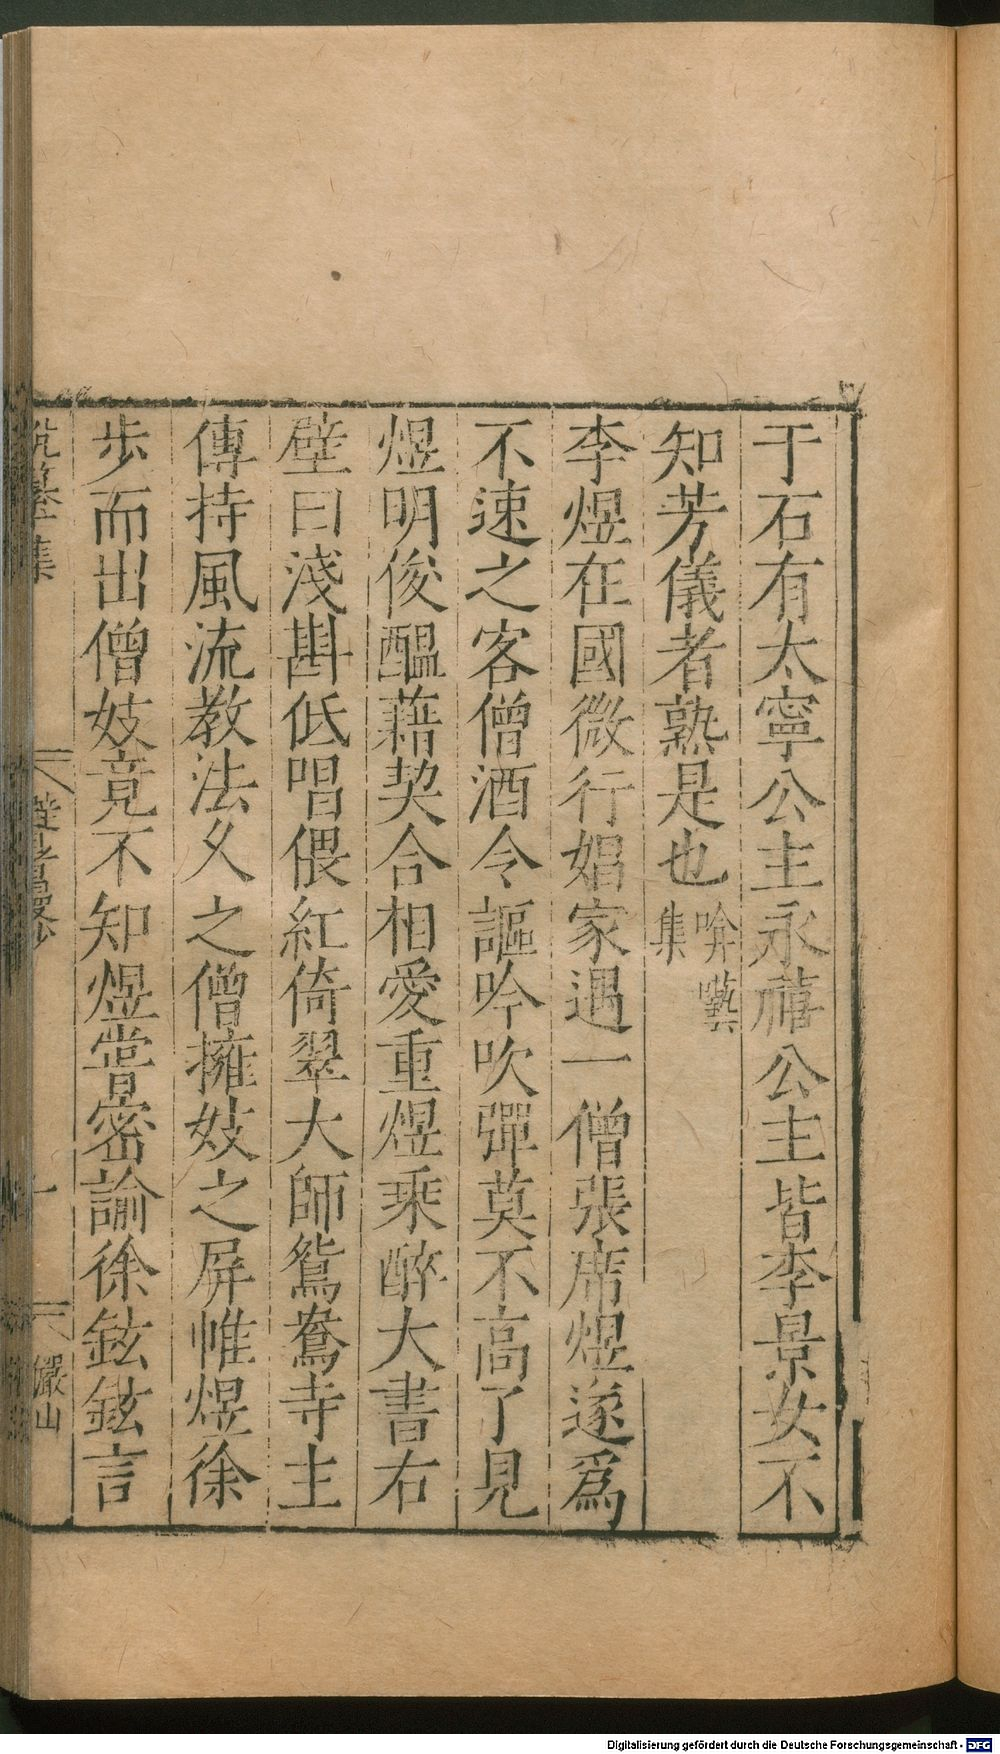 于石有太寧公主永禧公主皆李景女不
知芳儀者熟是也 吟囈集
李煜在國微行娼家遇一僧張席煜遂爲
不速之客僧酒令謳吟吹彈莫不高了見
煜明俊醞藉契合相愛重煜乘醉大書右
壁曰淺斟低唱偎紅倚翠大師鴛鴦寺主
傳持風流教法乆之僧擁妓之屏帷煜徐
步而出僧妓竟不知煜甞密諭徐鉉鉉言
集
儼山
Digitalisierung gefördert durch die Deutsche Forschungsgemeinschaft - DFG